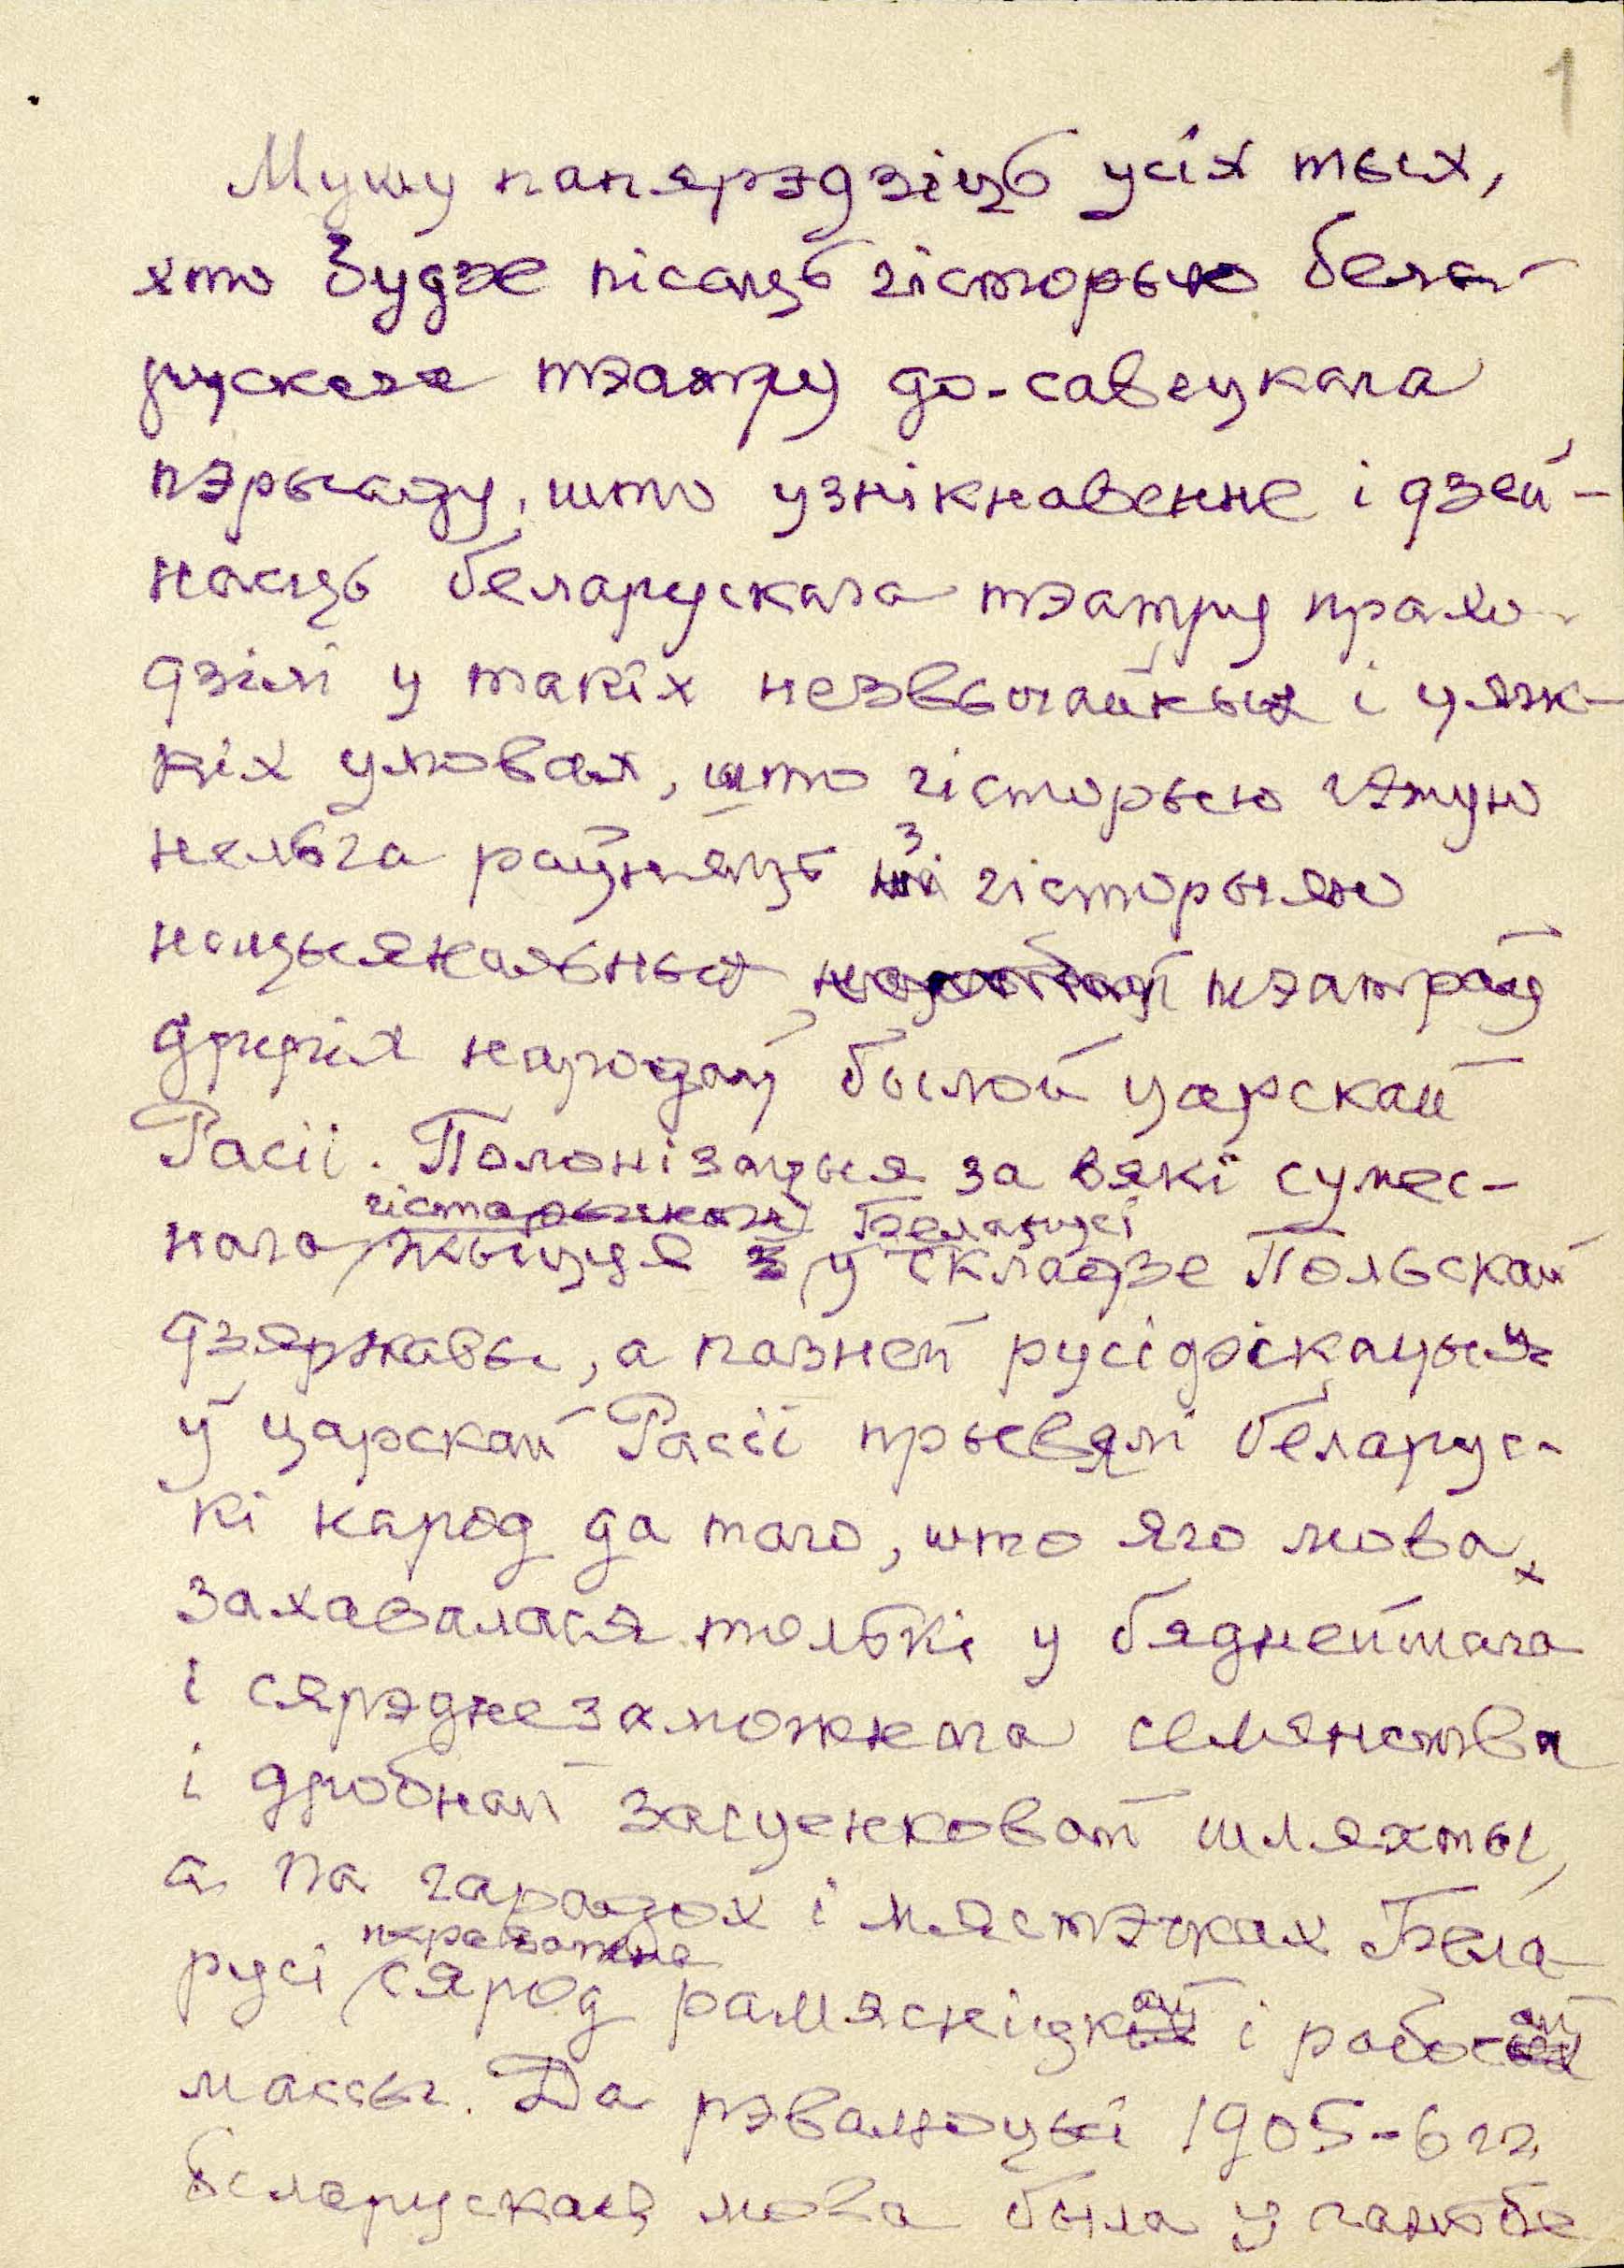 1
Мушу папярэдзіць усіх тых,
хто будзе пісаць гісторыю бела-
рускага тэатру до-савецкага
пэрыаду, што узнікнавенне і дзей-
насць беларускага тэатру прахо-
дзілі у такіх незвычайных і цяж-
кіх умовах, што гісторыю гэтую
нельга раўняць з гісторыяю
нацыянальных тэатраў
другіх народаў былой царскай
Расіі. Полонізацыя за вякі сумес-
гістарычнага Беларусі
нага жыцця у складзе Польскай
дзяржавы, а пазней русіфікацыя
ў царскай Расіі прывялі беларус-
кі народ да таго, што яго мова
захавалася толькі у бяднейшага
і сярэднезаможнага селянства
і дробнай засценковай шляхты,
а па гарадох і мястэчках Бела-
пераважна
русі сярод рамясніцкай і рабочай
массы. Да рэвалюцыі 1905-6 гг.
беларуская мова была у ганьбе